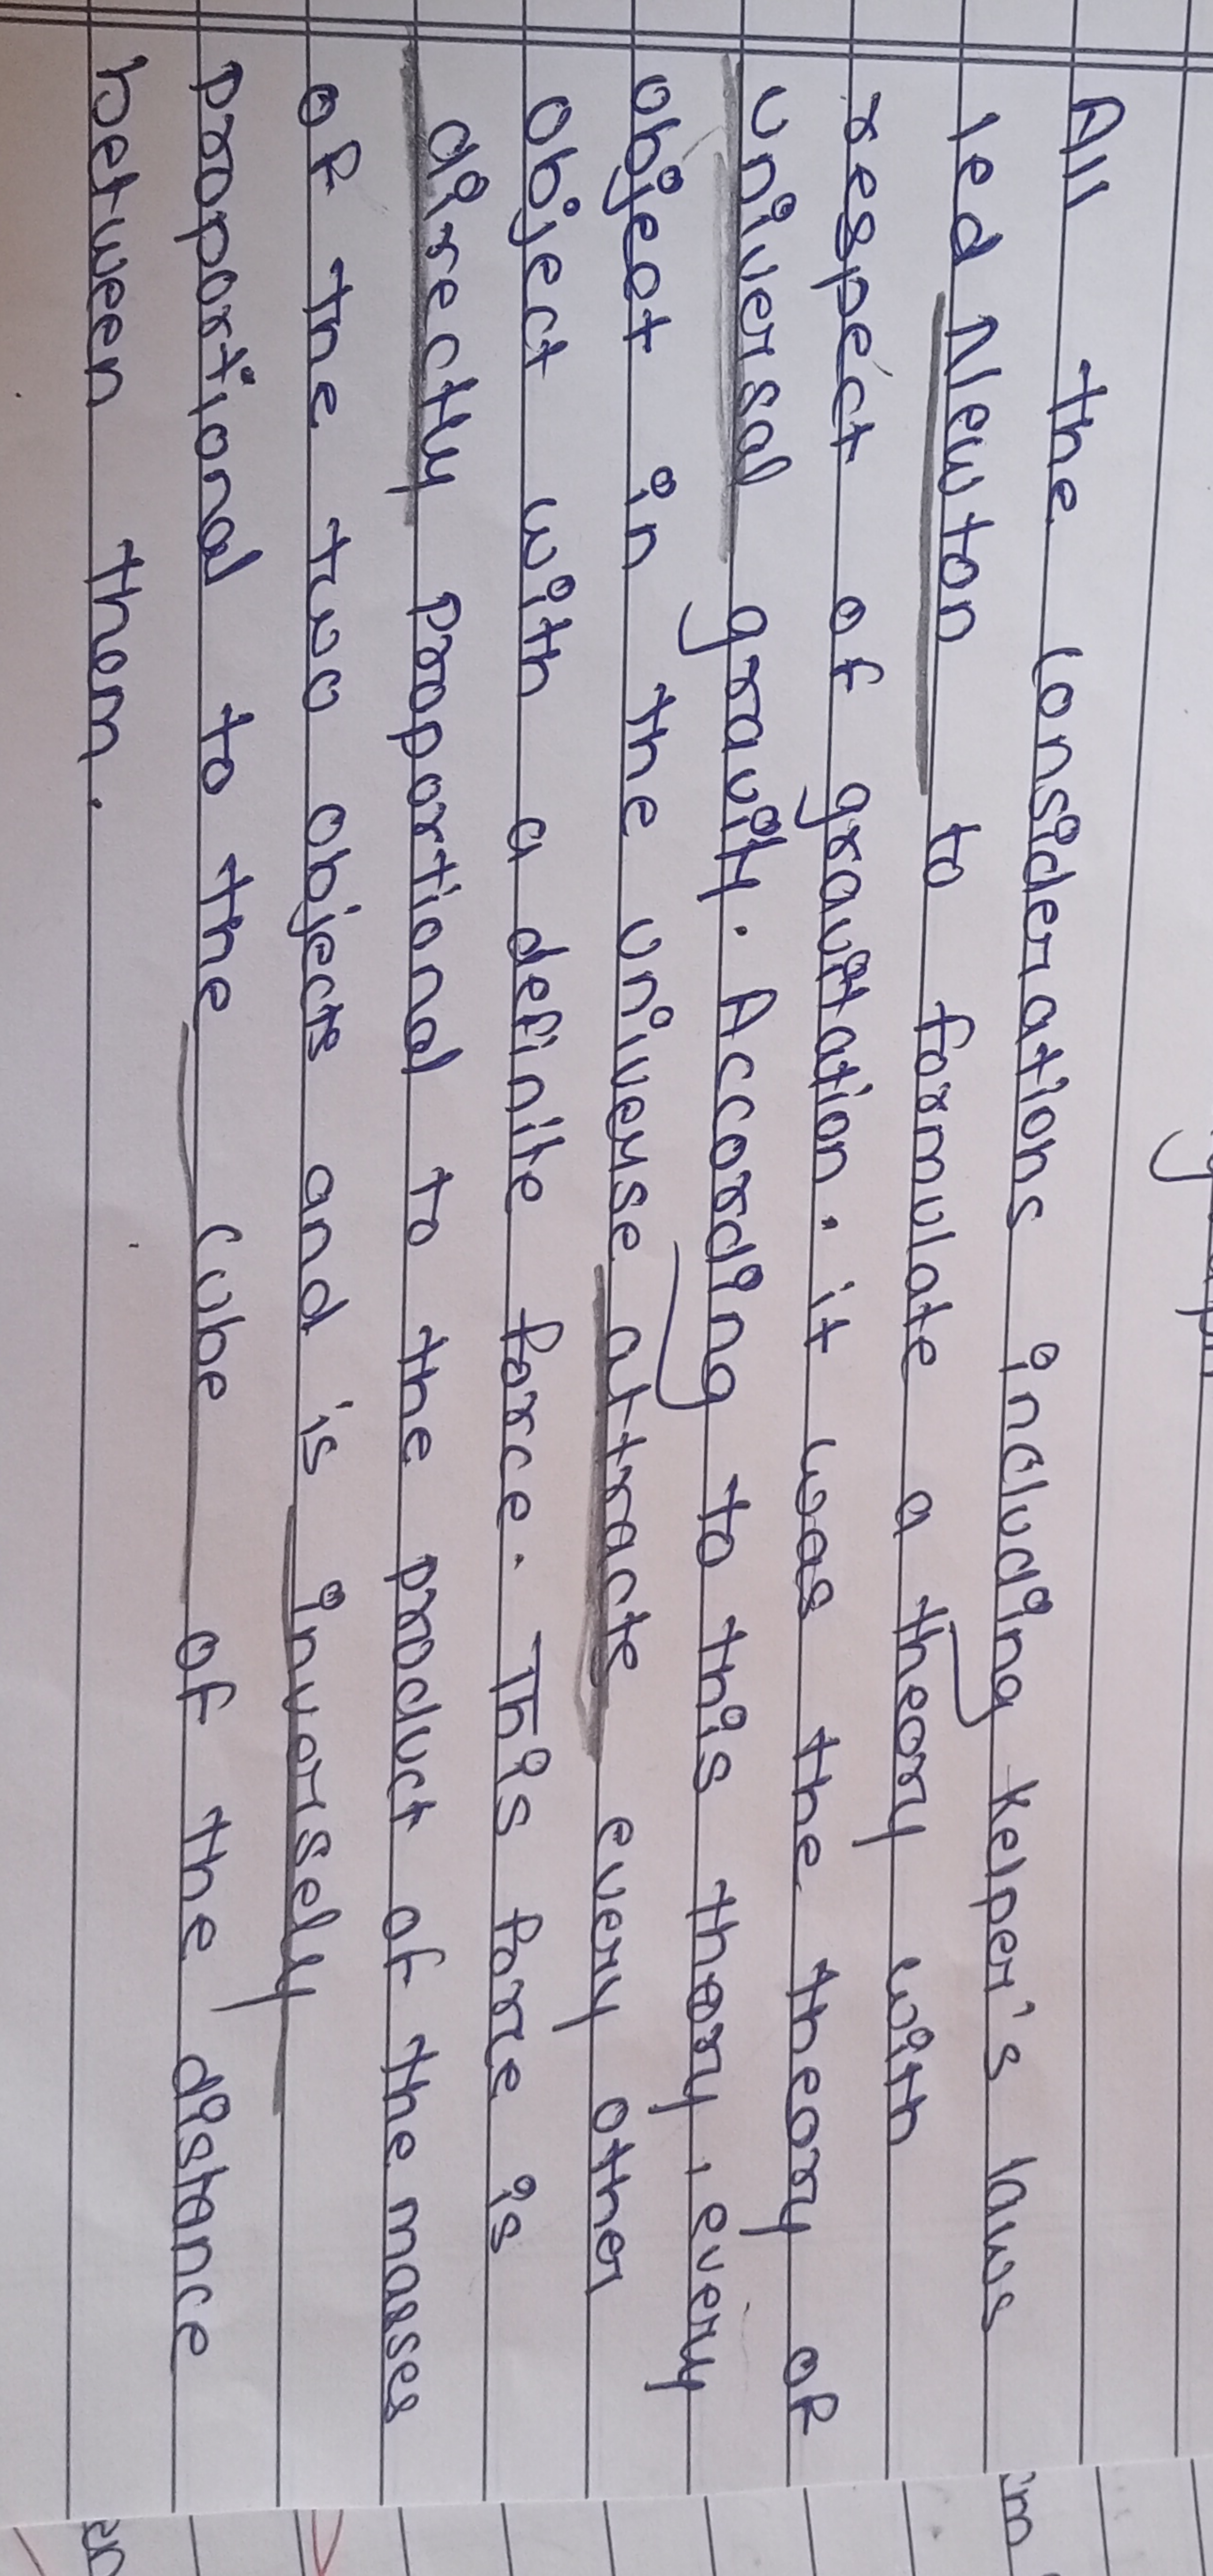 All the considerations including Kelper's laws
led Newton to formulate a theory with
respect of gravitation. it was the theory of
universal gravity. According to this theory, every
object in the universe attracts every other
object with a definite force. This force is
directly proportional to the product of the masses
of the two objects and is inversely
proportional to the cube of the distance
between them.